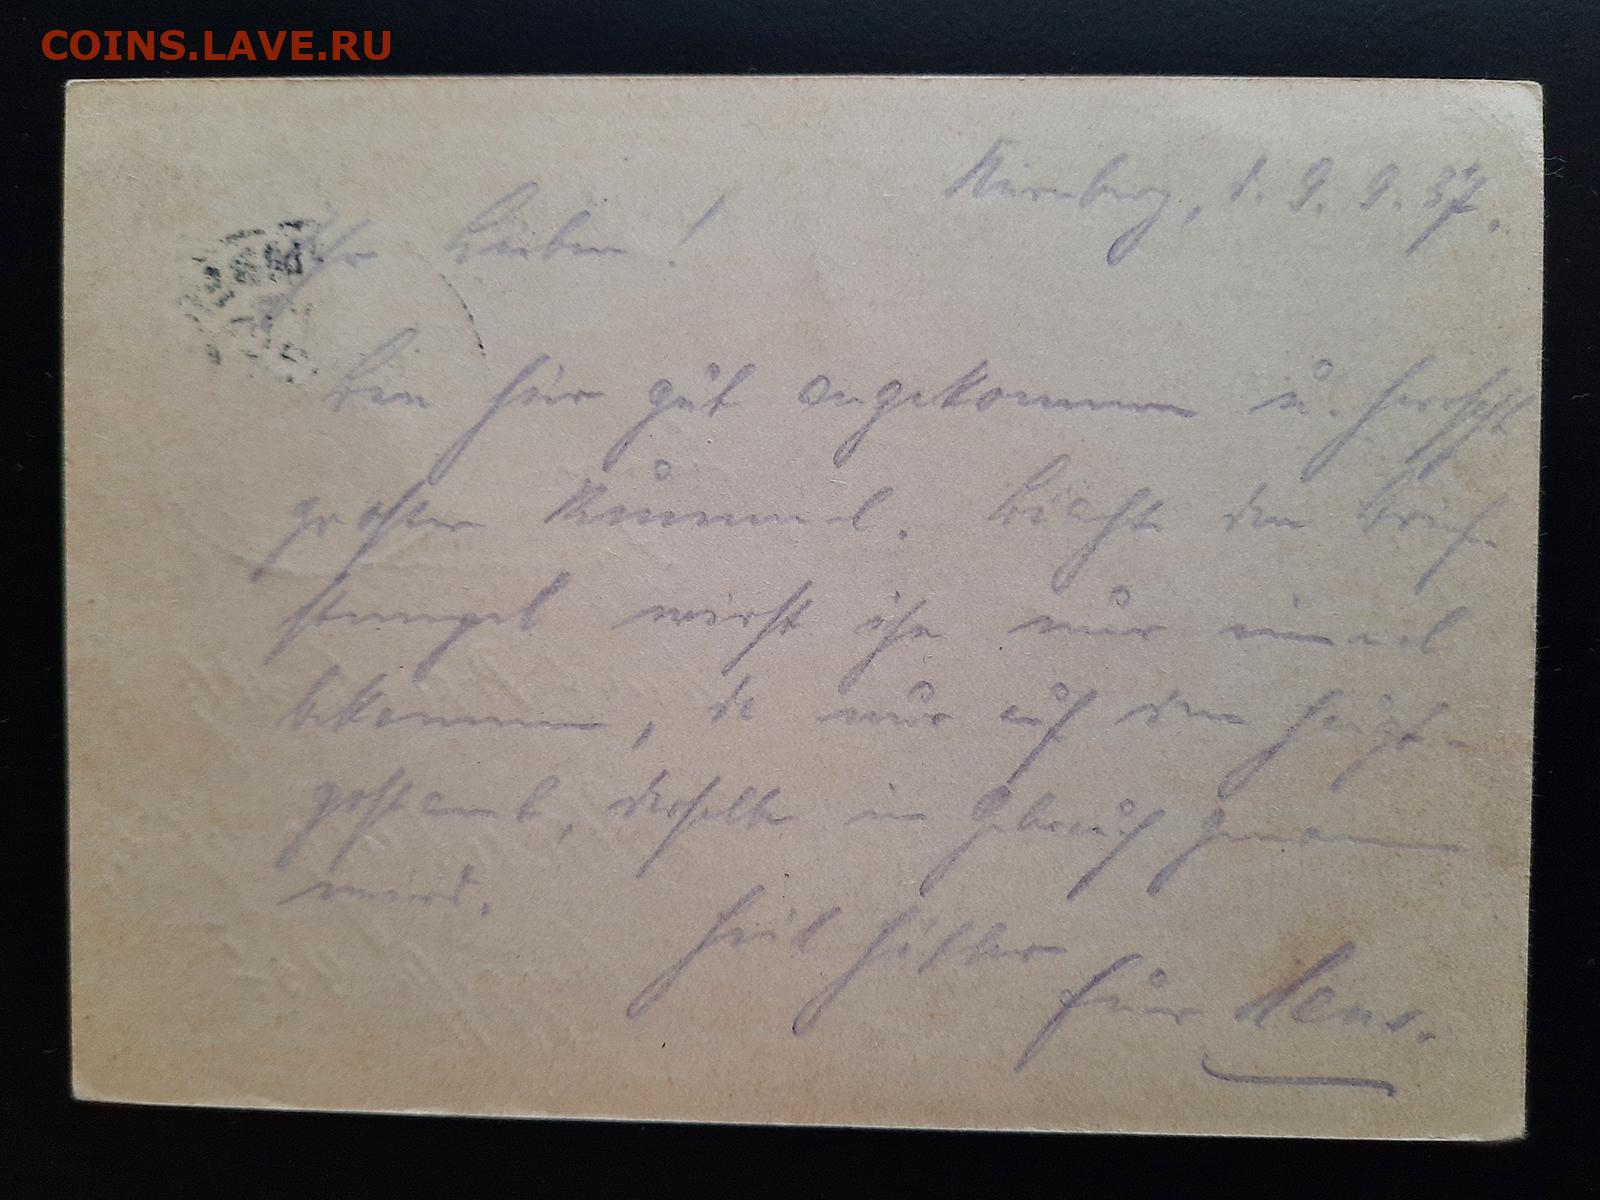 COINS.LAVE.RU
Nürnberg, d. 9. 9. 37.
Ihr Lieben!
Bin hier gut angekommen u. herrscht
großer Rummel. den Brief-
stempel wirst ihn nur einmal
bekommen, da nur auf dem Haupt-
postamt, derselbe in Gebrauch genom
wird.
Heil Hitler
Euer Hans.